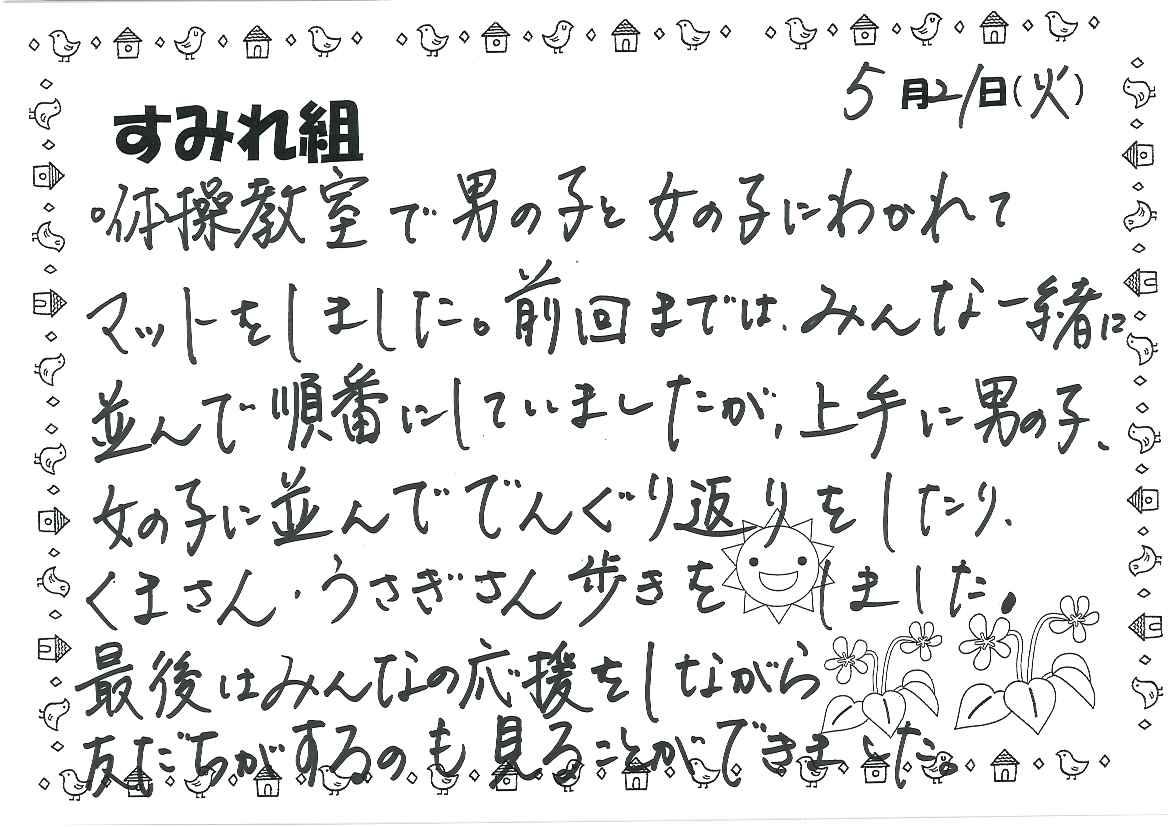 5月21日(火)
すみれ組
○体操教室で男の子と女の子にわかれて
マットをしました。前回までは、みんな一緒に
並んで順番にしていましたが、上手に男の子、
女の子に並んででんぐり返りをしたり、
くまさん・うさぎさん歩きをしました。
最後はみんなの応援をしながら
友だちがするのも見ることができました。